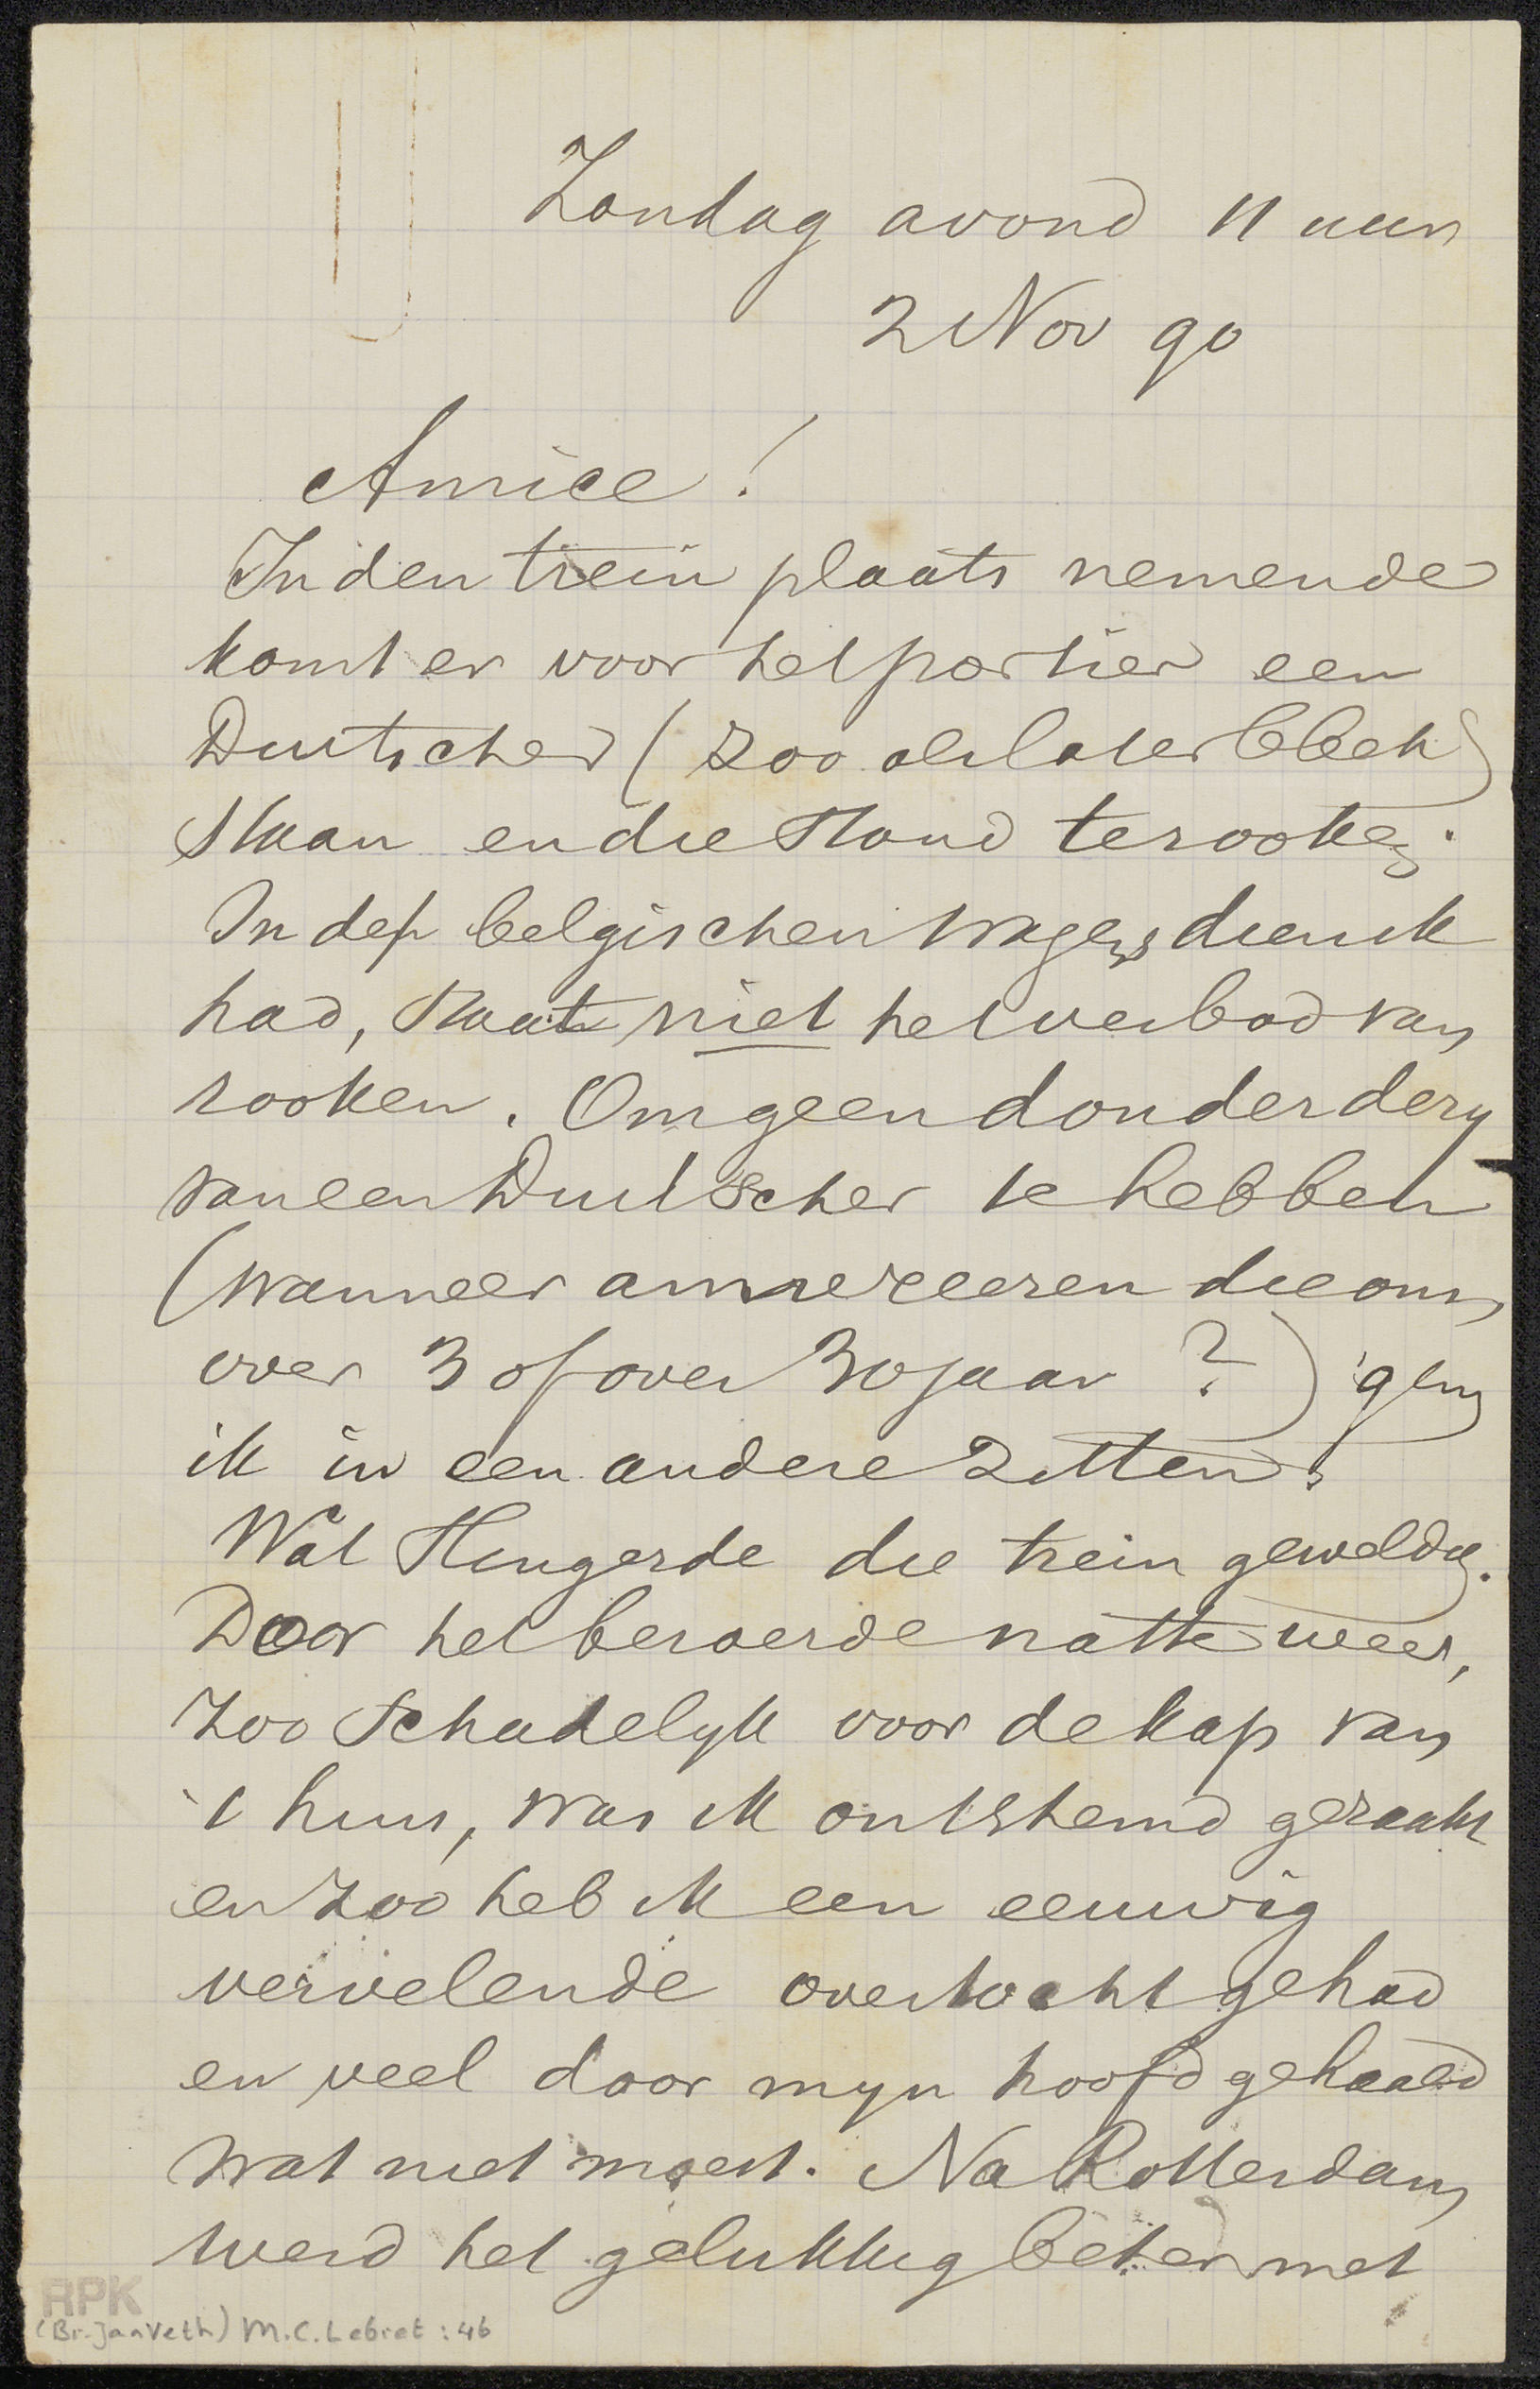 Zondag avond 11 uur
2 Nov 90
Amice!
In den trein plaats nemende
komt er voor het portier een
Duitscher (zoo als later bleek)
staan en die stond te rooken.
In den belgischen wagen, dien ik
had, staat niet het verbod van
rooken. Om geen donderdery
van een Duitscher te hebben
(wanneer annexeeren die ons
over 3 of over 30 jaar?) ging
ik in een andere zitten.
Wat slingerde die trein geweldig.
Door het beroerde natte weer,
zoo schadelyk voor de kap van
't huis, was ik ontstemd geraakt
en zoo heb ik een eeuwig
vervelende overtocht gehad
en veel door myn hoofd gehaald
wat niet moest. Na Rotterdam
werd het gelukkig beter met
RPK
(Br. Jan Veth) M.C. Lebret : 46